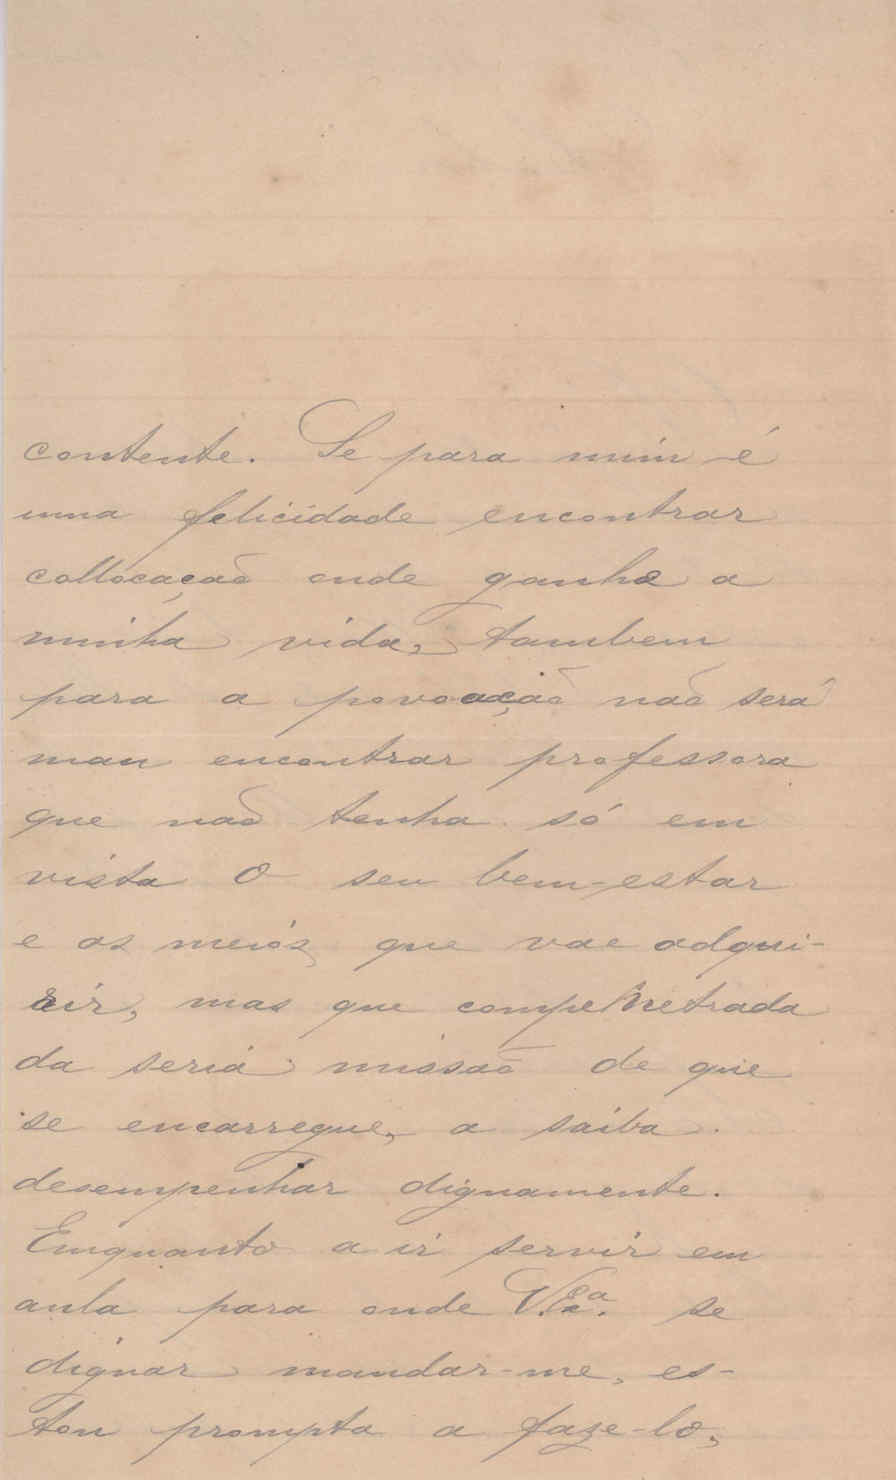 contente. Se para mim é
uma felicidade encontrar
collocação onde ganhe a
minha vida, tambem
para a povoação não será
mau encontrar professora
que não tenha só em
vista o seu bem-estar
e os meios que vae adqui-
rir, mas que compenetrada
da seria missão de que
se encarregue, a saiba
desempenhar dignamente.
Emquanto a ir servir em
aula para onde V. Exa. se
dignar mandar-me, es-
tou prompta a faze-lo,